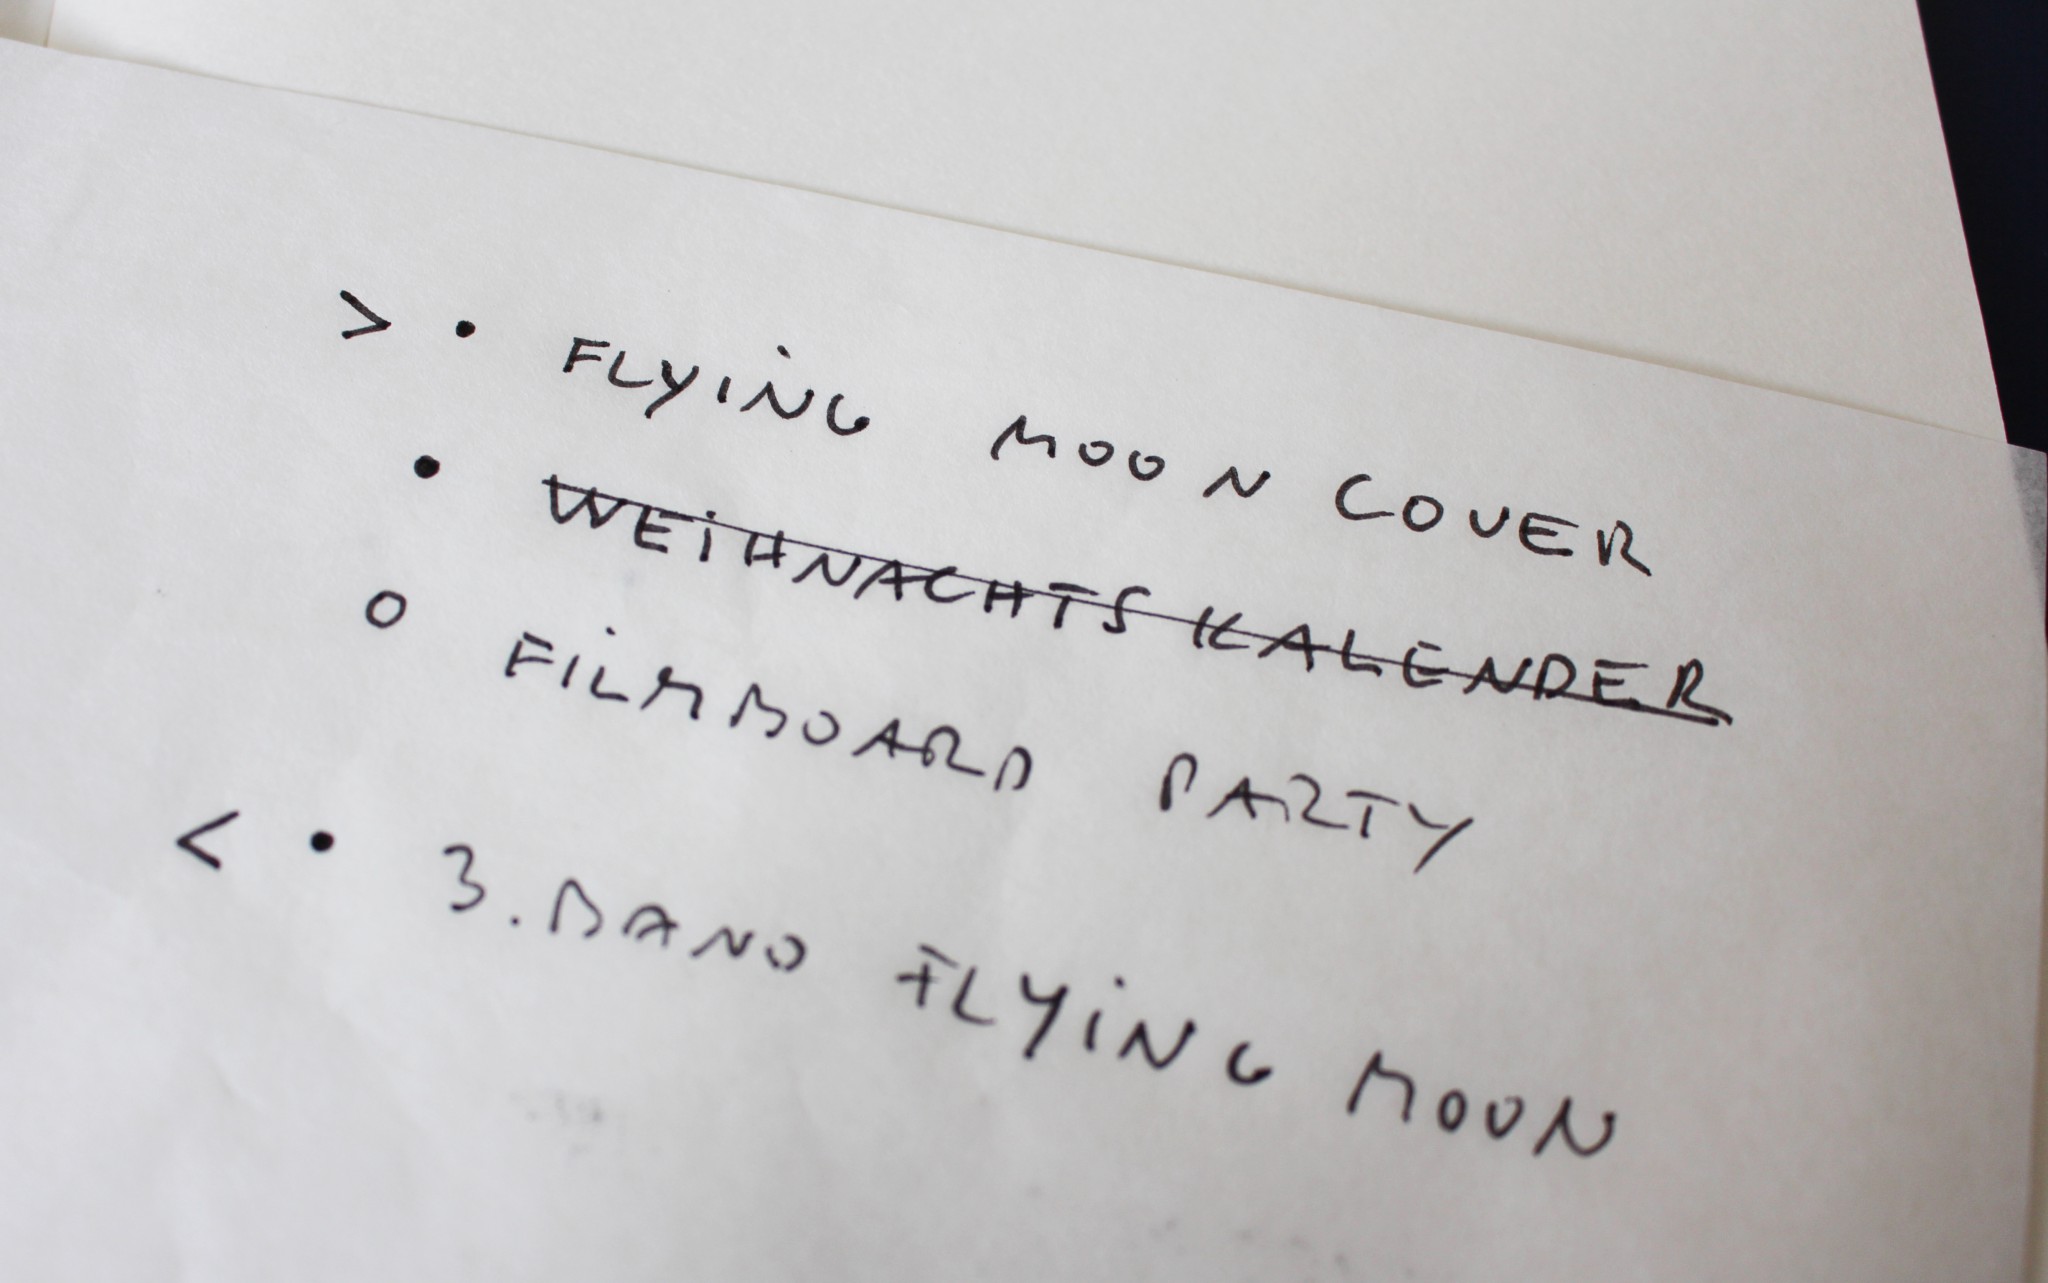 > • FLYING MOON COVER
• WEIHNACHTSKALENDER
o FILMBOARD PARTY
< • 3. BAND FLYING MOON